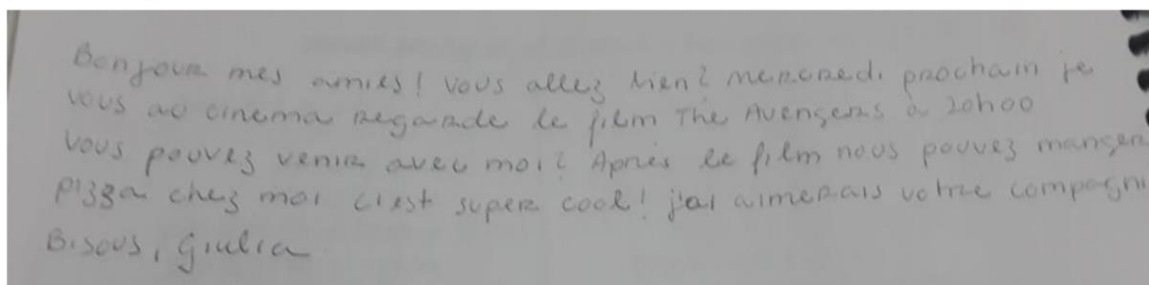 Bonjour mes amies! Vous allez bien? Mercredi prochain je
vous au cinema regarde le film The Avengers à 20h00
Vous pouvez venir avec moi? Après le film nous pouvez manger
pizza chez moi c'est super cool! j'ai aimerais votre compagni
Bisous, Giulia